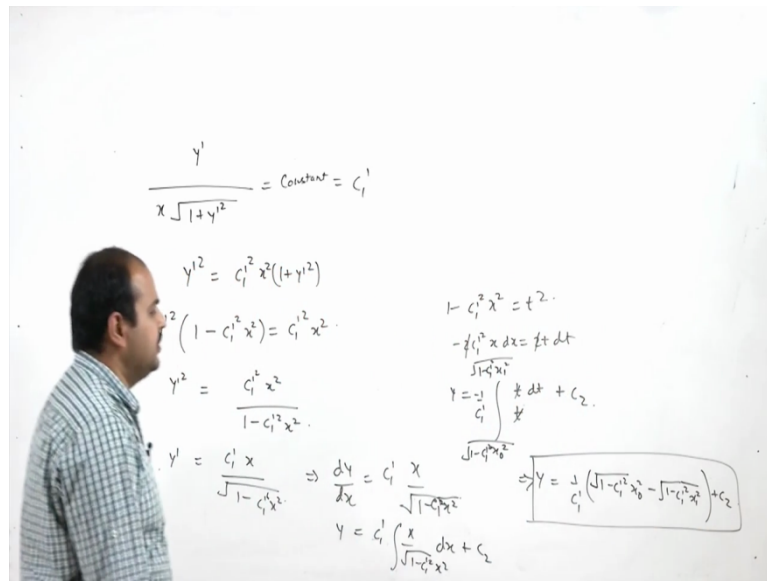 y' / (x √(1+y'²)) = Constant = C₁'
y'² = C₁'² x² (1+y'²)
'² (1 − C₁'² x²) = C₁'² x².
y'² = C₁'² x² / (1 − C₁'² x²).
y' = C₁' x / √(1 − C₁'² x²) ⇒ dy/dx = C₁' x / √(1−C₁'² x²)
y = C₁' ∫ x / √(1−C₁'² x²) dx + C₂
1 − C₁'² x² = t².
−2 C₁'² x dx = 2t dt
y = −1/C₁' ∫_{√(1−C₁'² x₀²)}^{√(1−C₁'² x₁²)} t dt / t + C₂.
⇒ y = 1/C₁' (√(1−C₁'² x₀²) − √(1−C₁'² x₁²)) + C₂